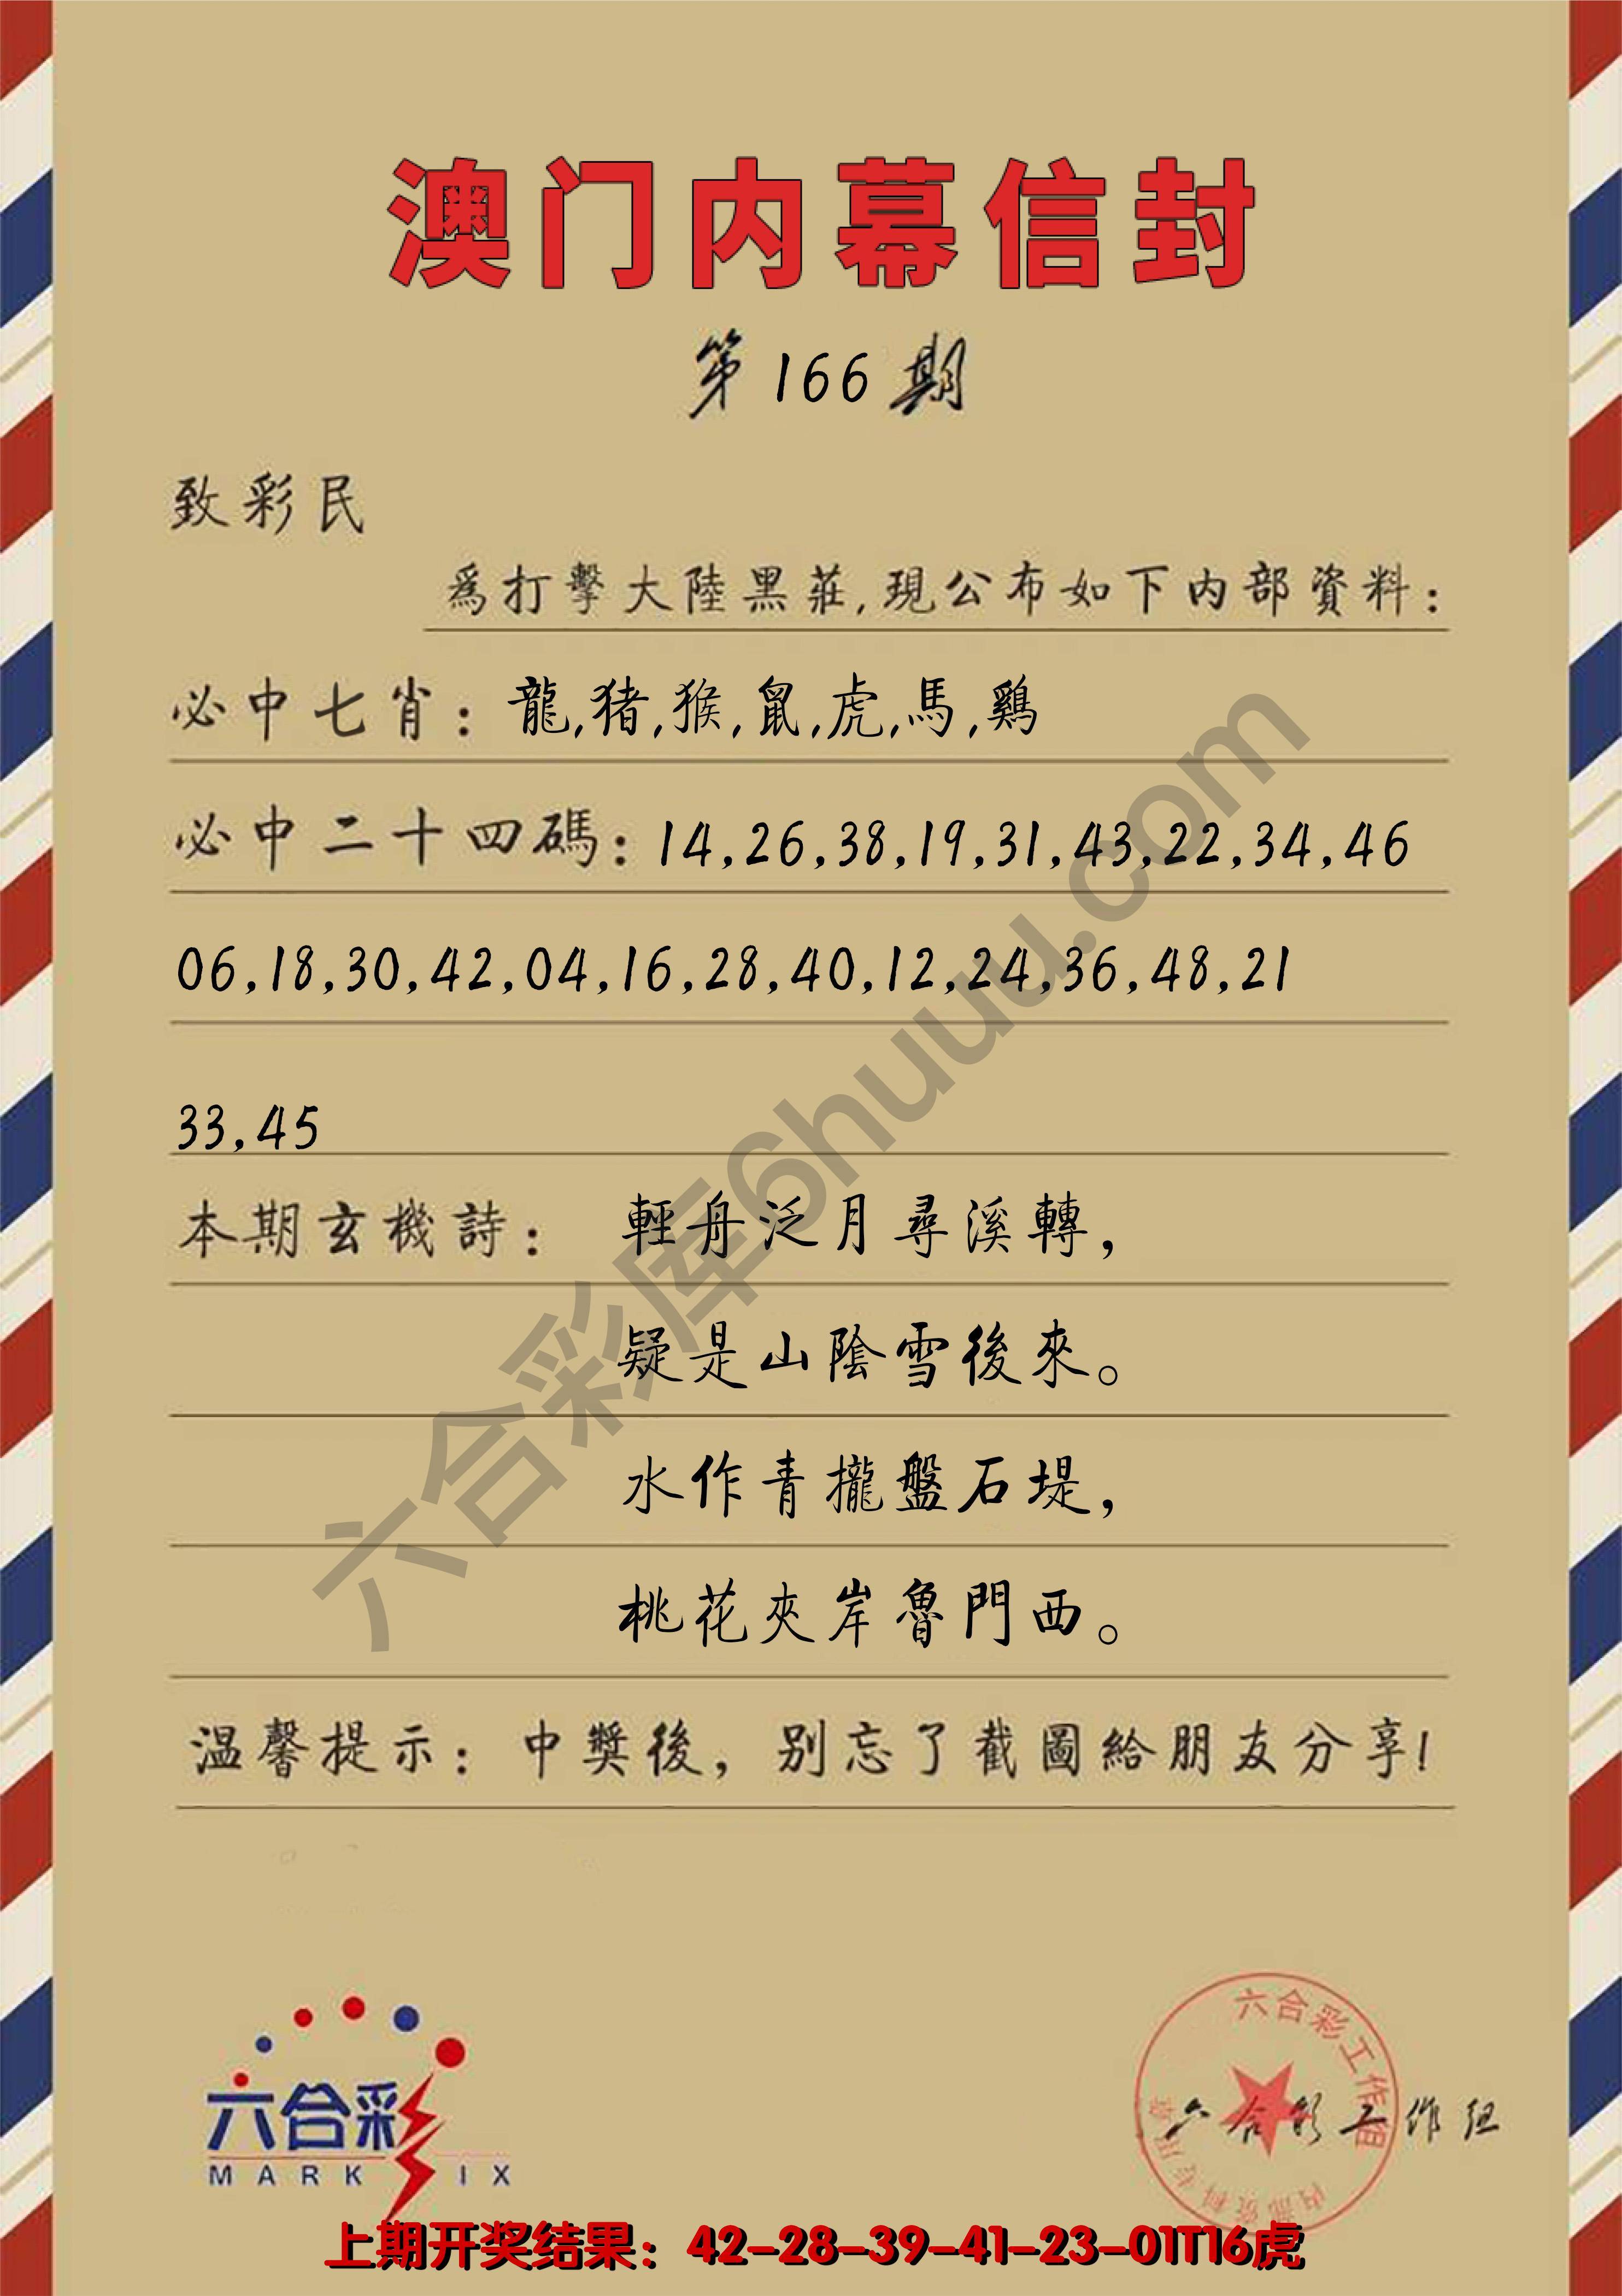 澳门内幕信封
第166期
致彩民
爲打擊大陸黑莊,現公布如下内部資料:
必中七肖: 龍,猪,猴,鼠,虎,馬,鷄
必中二十四碼: 14,26,38,19,31,43,22,34,46
06,18,30,42,04,16,28,40,12,24,36,48,21
33,45
本期玄機詩: 輕舟泛月尋溪轉,
疑是山陰雪後來。
水作青攏盤石堤,
桃花夾岸魯門西。
温馨提示: 中獎後, 别忘了截圖給朋友分享!
六合彩库6huuu.com
六合彩
MARK SIX
六合彩工作组
内部资料专用章
六合彩工作组
上期开奖结果: 42-28-39-41-23-01T16虎